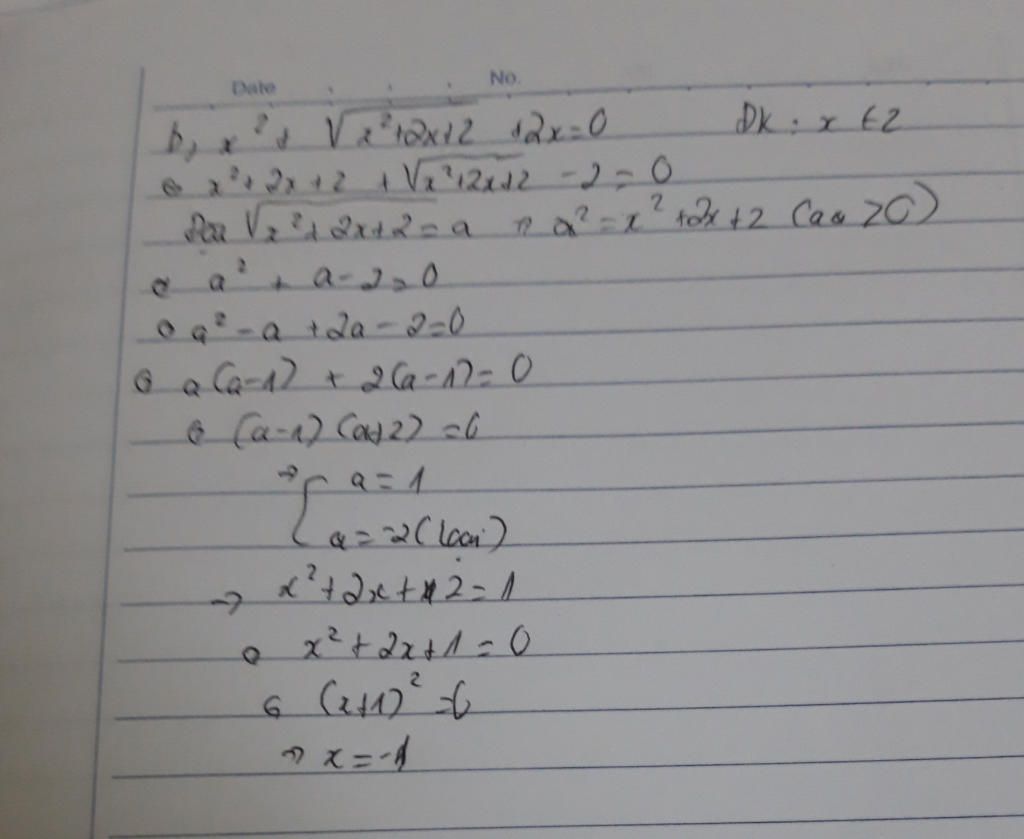 Date No.
b, x² + √(x²+2x+2) +2x=0 ĐK: x ∈ Z
⇔ x²+2x+2 + √(x²+2x+2) - 2 = 0
Đặt √(x²+2x+2) = a ⇒ a² = x²+2x+2 (a ≥ 0)
⇔ a² + a - 2 = 0
⇔ a² - a + 2a - 2 = 0
⇔ a(a-1) + 2(a-1) = 0
⇔ (a-1)(a+2) = 0
⇒ [ a = 1
a = -2 (loại)
→ x² + 2x + 2 = 1
⇔ x² + 2x + 1 = 0
⇔ (x+1)² = 0
⇒ x = -1